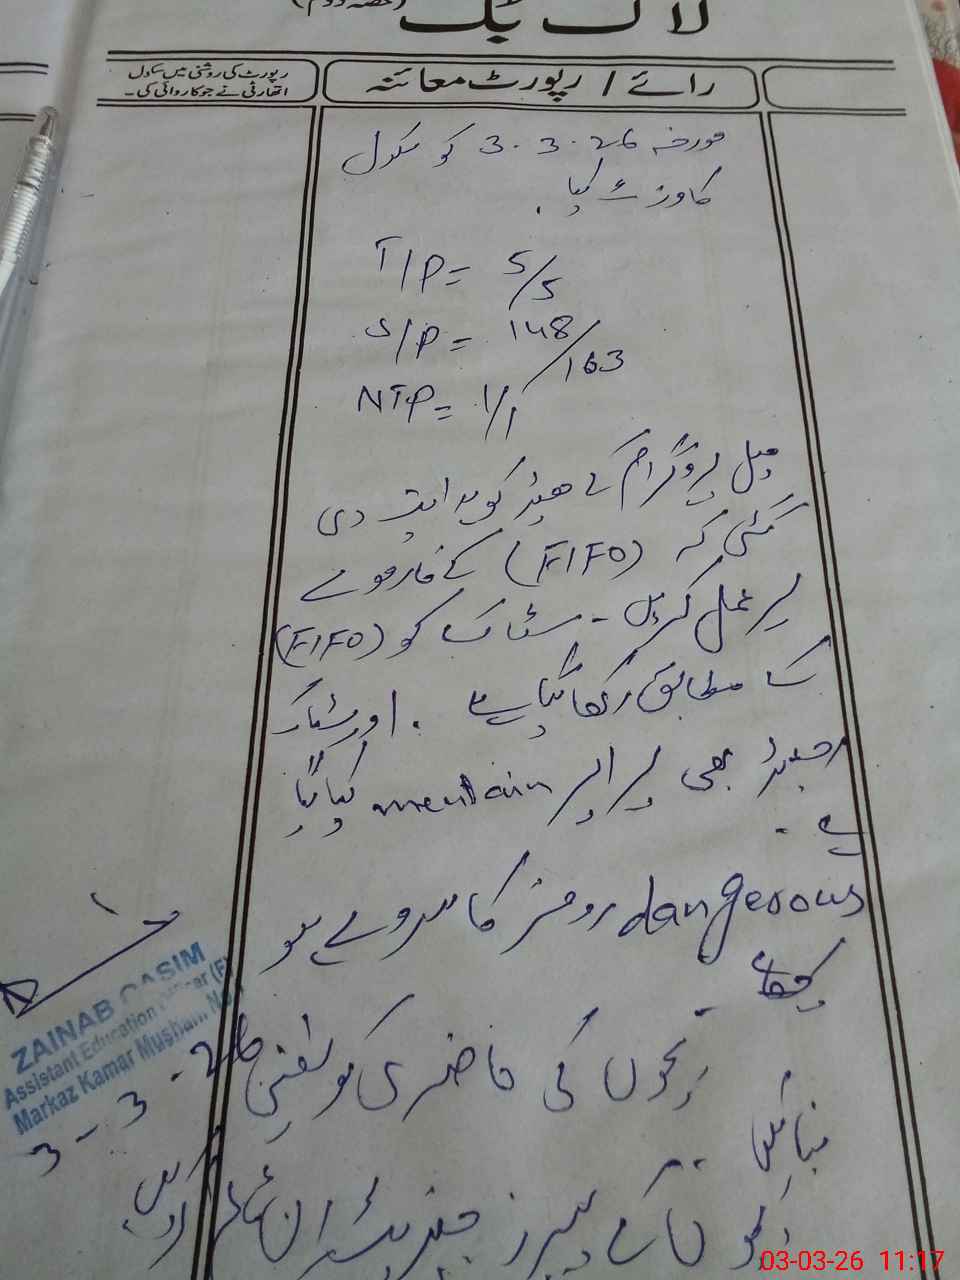 لاگ بک (حصہ دوم)
رپورٹ کی روشنی میں سکول
اتھارٹی نے جو کاروائی کی۔
رائے / رپورٹ معائنہ
مورخہ 3.3.26 کو سکول
کا وزٹ کیا۔
T/P = 5/5
S/P = 148/163
NTP = 1/1
میل پروگرام کے ہیڈ کو ہدایت دی
گئی کہ (FIFO) کے فارمولے
پر عمل کریں۔ سٹاک کو (FIFO)
کے مطابق رکھا گیا ہے۔ اور سٹاک
رجسٹر بھی پراپر mentain کیا گیا
ہے۔
dangerous رومز کا سروے ہو
چکا ہے۔
بچوں کی حاضری کو یقینی
بنائیں۔
بچوں کے پیپرز
ZAINAB QASIM
Assistant Education Officer (F)
Markaz Kamar Mushani No.
3-3-26
03-03-26 11:17